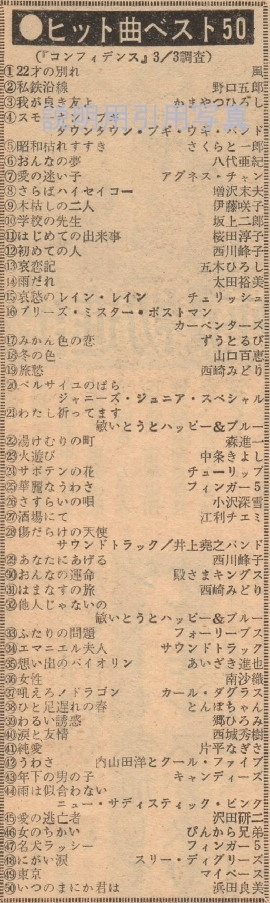 ●ヒット曲ベスト50
(『コンフィデンス』3/3調査)
①22才の別れ 風
②私鉄沿線 野口五郎
③我が良き友よ かまやつひろし
④スモーキン・ブギ
ダウンタウン・ブギ・ウギ・バンド
説明用引用写真
⑤昭和枯れすすき さくらと一郎
⑥おんなの夢 八代亜紀
⑦愛の迷い子 アグネス・チャン
⑧さらばハイセイコー 増沢末夫
⑨木枯しの二人 伊藤咲子
⑩学校の先生 坂上二郎
⑪はじめての出来事 桜田淳子
⑫初めての人 西川峰子
⑬哀恋記 五木ひろし
⑭雨だれ 太田裕美
⑮哀愁のレイン・レイン チェリッシュ
⑯プリーズ・ミスター・ポストマン
カーペンターズ
⑰みかん色の恋 ずうとるび
⑱冬の色 山口百恵
⑲旅愁 西崎みどり
⑳ベルサイユのばら
ジャニーズ・ジュニア・スペシャル
㉑わたし祈ってます
敏いとうとハッピー&ブルー
㉒湯けむりの町 森進一
㉓火遊び 中条きよし
㉔サボテンの花 チューリップ
㉕華麗なうわさ フィンガー5
㉖さすらいの唄 小沢深雪
㉗酒場にて 江利チエミ
㉘傷だらけの天使
サウンドトラック/井上堯之バンド
㉙あなたにあげる 西川峰子
㉚おんなの運命 殿さまキングス
㉛はまなすの旅 西崎みどり
㉜他人じゃないの
敏いとうとハッピー&ブルー
㉝ふたりの問題 フォーリーブス
㉞エマニエル夫人 サウンドトラック
㉟想い出のバイオリン あいざき進也
㊱女性 南沙織
㊲吼えろ!ドラゴン カール・ダグラス
㊳ひと足遅れの春 とんぼちゃん
㊴わるい誘惑 郷ひろみ
㊵涙と友情 西城秀樹
㊶純愛 片平なぎさ
㊷うわさ 内山田洋とクール・ファイブ
㊸年下の男の子 キャンディーズ
㊹雨は似合わない
ニュー・サディスティック・ピンク
㊺愛の逃亡者 沢田研二
㊻女のちかい ぴんから兄弟
㊼名犬ラッシー フィンガー5
㊽にがい涙 スリー・ディグリーズ
㊾東京 マイペース
㊿いつのまにか君は 浜田良美